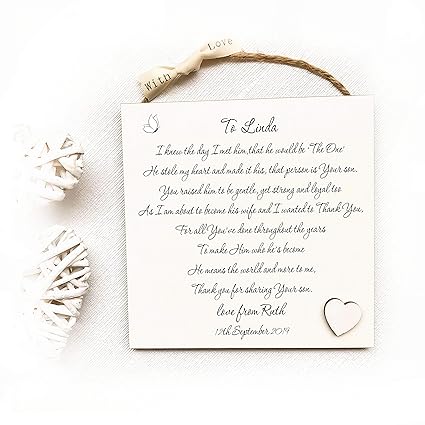 With Love
To Linda
I knew the day I met him, that he would be 'The One'
He stole my heart and made it his, that person is Your son.
You raised him to be gentle, yet strong and loyal too
As I am about to become his wife and I wanted to Thank You,
For all You've done throughout the years
To make Him who he's become
He means the world and more to me,
Thank you for sharing Your son.
love from Ruth
12th September 2019